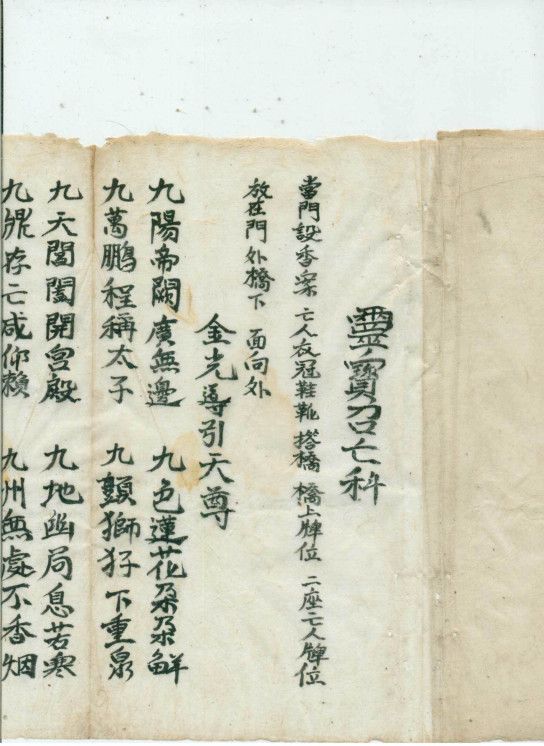 靈寶召亡科
當門設香案 亡人衣冠鞋靴 搭橋 橋上牌位 二座亡人牌位
放在門外橋下 面向外
金光導引天尊
九陽帝闕廣無邊 九色蓮花朶朶鮮
九萬鵬程稱太子 九頭獅子下重泉
九天閶闔開宮殿 九地幽局息苦寒
九鼎存亡咸仰賴 九州無處不香烟